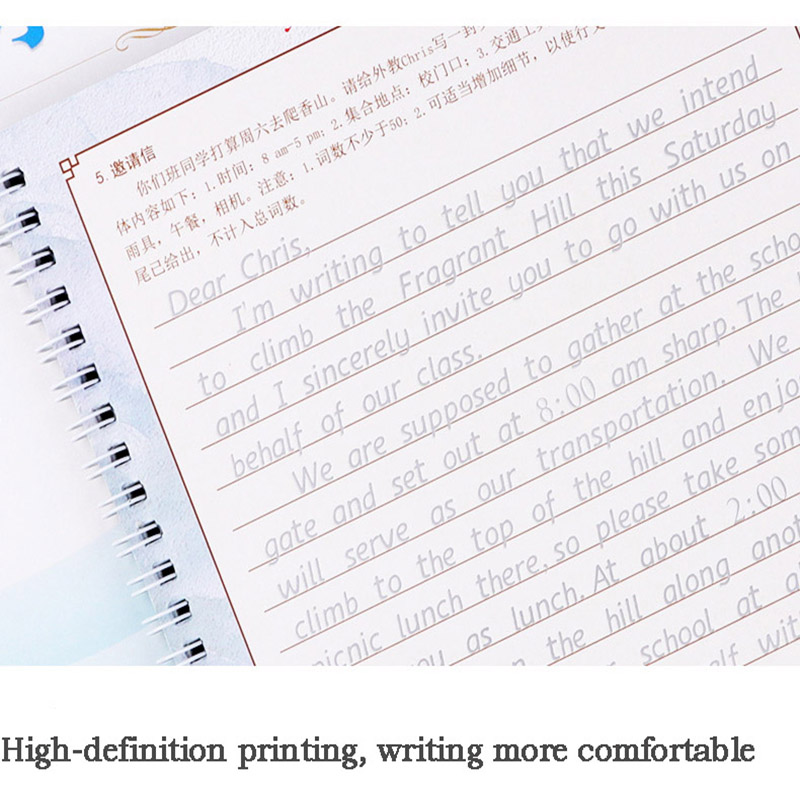 5.邀请信
你们班同学打算周六去爬香山。请给外教Chris写一封
体内容如下：1.时间：8 am-5 pm；2.集合地点：校门口；3.交通工
雨具，午餐，相机。注意：1.词数不少于50；2.可适当增加细节，以使行
尾已给出，不计入总词数。
Dear Chris,
I'm writing to tell you that we intend
to climb the Fragrant Hill this Saturday
and I sincerely invite you to go with us on
behalf of our class.
We are supposed to gather at the scho
gate and set out at 8:00 am sharp. The
will serve as our transportation. We
climb to the top of the hill and enjo
picnic lunch there, so please take som
you as lunch. At about 2:00
the hill along anot
school at
elf wit
High-definition printing, writing more comfortable